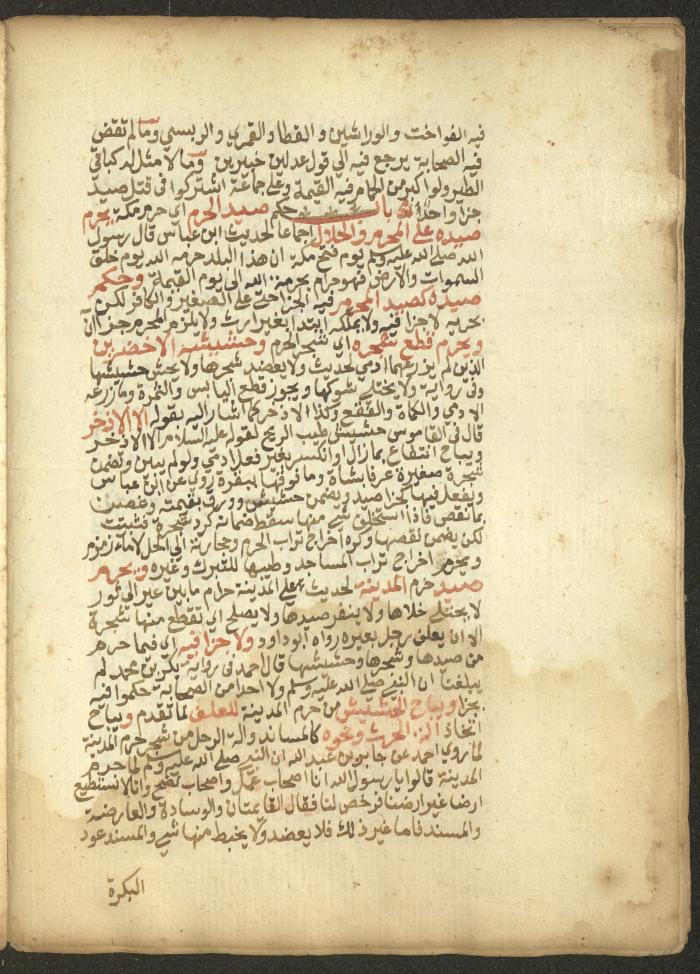 فيه الفواخت والوراشين والقطا والقمري والدبسي وما لم تقض
فيه الصحابة يرجع فيه الي قول عدلين خبيرين وما لا مثل له كباقي
الطيور ولو اكبر من الحمام فيه القيمة وعلى جماعة اشتركوا في قتل صيد
جزا واحد باب حكم صيد الحرم اي حرم مكة يحرم
صيده على المحرم والحلال اجماعا لحديث ابن عباس قال رسول
الله صلى الله عليه وسلم يوم فتح مكة ان هذا البلد حرمه الله يوم خلق
السموات والارض فهو حرام بحرمة الله الى يوم القيمة وحكم
صيده كصيد المحرم فيه الجزا حتى على الصغير والكافر لكن
بحريه لا جزا فيه ولا يملكه ابتدا بغير ارث ولا يلزم المحرم جزاآن
ويحرم قطع شجره اي شجر الحرم وحشيشه الاخضرين
الذين لم يزرعهما ادمي لحديث ولا يعضد شجرها ولا يحش حشيشها
وفي رواية ولا يختلى شوكها ويجوز قطع اليابس والثمرة وما زرعه
الادمي والكماة والفقع وكذا الاذخر كما اشار اليه بقوله الا الاذخر
قال في القاموس حشيش طيب الريح لقوله عليه السلام الا الاذخر
ويباح انتفاع بما زال او انكسر بغير فعل ادمي ولو لم يبن وتضمن
شجرة صغيرة عرفا بشاة وما فوقها ببقرة روي عن ابن عباس
ويفعل فيها كجزا صيد ويضمن حشيش وورق بقيمته وغصن
بما نقص فان استخلف شي منها سقط ضمانه كرد شجرة فنبتت
لكن يضمن نقصها وكره اخراج تراب الحرم وحجارته الى الحل لا ماء زمزم
ويحرم اخراج تراب المساجد وطيبها للتبرك وغيره ويحرم
صيد حرم المدينة لحديث علي المدينة حرام ما بين عير الى ثور
لا يختلى خلاها ولا ينفر صيدها ولا يصلح ان تقطع منها شجرة
الا ان يعلف رجل بعيره رواه ابو داود ولا جزا فيه اي فيما حرم
من صيدها وشجرها وحشيشها قال احمد في رواية بكر بن محمد لم
يبلغنا ان النبي صلى الله عليه وسلم ولا احدا من الصحابة حكموا فيه
بجزا ويباح الحشيش من حرم المدينة للعلف لما تقدم ويباح
اتخاذ الة الحرث ونحوه كالمساند والة الرحل من شجر حرم المدينة
لما روي احمد عن جابر بن عبد الله ان النبي صلى الله عليه وسلم لما حرم
المدينة قالوا يا رسول الله انا اصحاب عمل واصحاب نضح وانا لا نستطيع
ارضا غير ارضنا فرخص لنا فقال القايمتان والوسادة والعارضة
والمسند فاما غير ذلك فلا يعضد ولا يخبط منها شي والمسند عود
البكرة